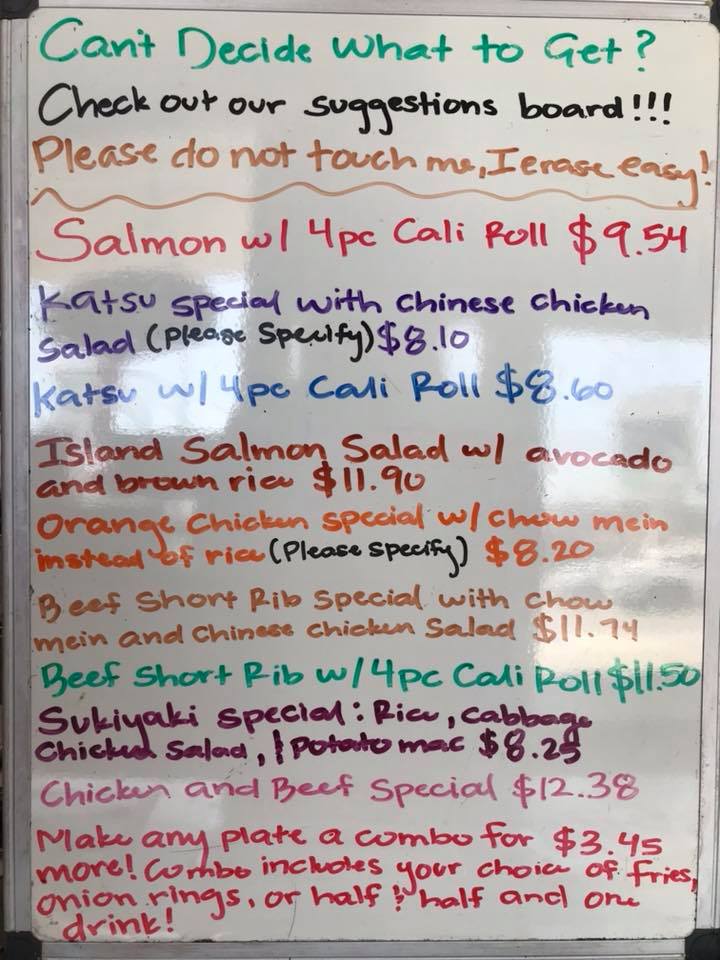 Can't Decide What to Get?
Check out our suggestions board!!!
Please do not touch me, I erase easy!
Salmon w/ 4pc Cali Roll $9.54
Katsu special with Chinese Chicken
Salad (Please Specify) $8.10
Katsu w/ 4pc Cali Roll $8.60
Island Salmon Salad w/ avocado
and brown rice $11.90
Orange Chicken special w/ chow mein
instead of rice (Please specify) $8.20
Beef Short Rib Special with chow
mein and Chinese Chicken Salad $11.74
Beef Short Rib w/ 4pc Cali Roll $11.50
Sukiyaki special: Rice, Cabbage
Chicken Salad, 1 Potato mac $8.25
Chicken and Beef Special $12.38
Make any plate a combo for $3.45
more! Combo includes your choice of fries,
onion rings, or half & half and one
drink!